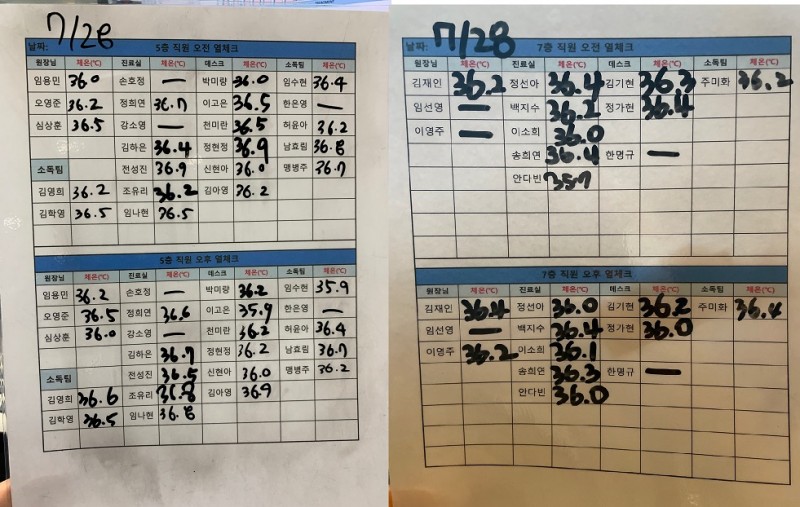 7/28
날짜: 5층 직원 오전 열체크
원장님 체온(℃) 진료실 체온(℃) 데스크 체온(℃) 소독팀 체온(℃)
임용민 36.0 손호정 — 박미량 36.0 임수현 36.4
오영준 36.2 정희연 36.7 이고은 36.5 한은영 —
심상훈 36.5 강소영 — 천미란 36.5 허윤아 36.2
김하은 36.4 정현정 36.9 남효림 36.8
소독팀 전성진 36.9 신현아 36.0 맹병주 36.7
김영희 36.2 조유리 36.2 김아영 36.2
김학영 36.5 임나현 36.5
5층 직원 오후 열체크
원장님 체온(℃) 진료실 체온(℃) 데스크 체온(℃) 소독팀 체온(℃)
임용민 36.2 손호정 — 박미량 36.2 임수현 35.9
오영준 36.5 정희연 36.6 이고은 35.9 한은영 —
심상훈 36.0 강소영 — 천미란 36.2 허윤아 36.4
김하은 36.7 정현정 36.2 남효림 36.7
소독팀 전성진 36.5 신현아 36.0 맹병주 36.2
김영희 36.6 조유리 김아영 36.9
김학영 36.5 임나현 36.8
7/28
날짜: 7층 직원 오전 열체크
원장님 체온(℃) 진료실 체온(℃) 데스크 체온(℃) 소독팀 체온(℃)
김재인 36.2 정선아 36.4 김기현 36.3 주미화 36.2
임선영 — 백지수 36.2 정가현 36.4
이영주 — 이소희 36.0
송희연 36.4 한명규 —
안다빈 35.7
7층 직원 오후 열체크
원장님 체온(℃) 진료실 체온(℃) 데스크 체온(℃) 소독팀 체온(℃)
김재인 36.4 정선아 36.0 김기현 36.2 주미화 36.4
임선영 — 백지수 36.4 정가현 36.0
이영주 36.2 이소희 36.1
송희연 36.3 한명규 —
안다빈 36.0